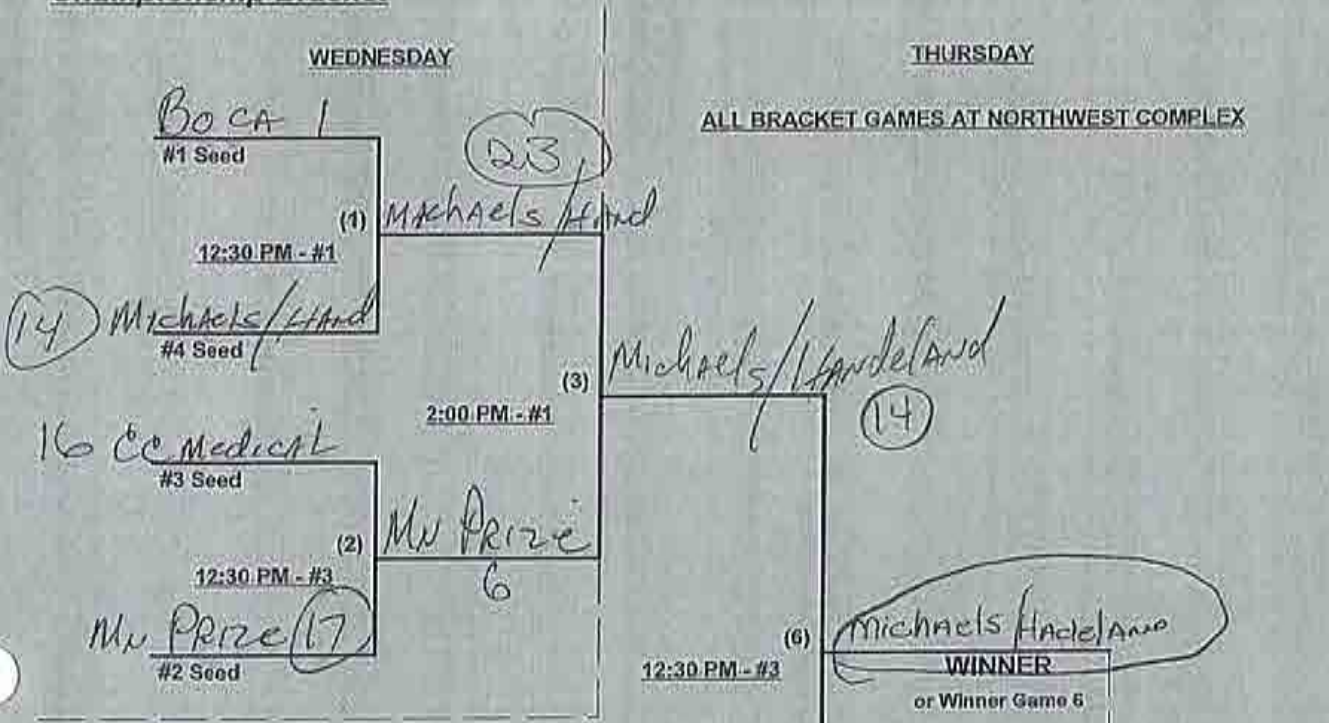 Championship Bracket
WEDNESDAY
THURSDAY
ALL BRACKET GAMES AT NORTHWEST COMPLEX
BOCA 1
#1 Seed
23
(1) Michaels/Hand
12:30 PM - #1
14 Michaels/Hand
#4 Seed
(3) Michaels/Handeland
14
2:00 PM - #1
16 CC Medical
#3 Seed
(2) MN Prize
6
12:30 PM - #3
MN Prize 17
#2 Seed
(6) Michaels/Hadeland
12:30 PM - #3
WINNER
or Winner Game 6